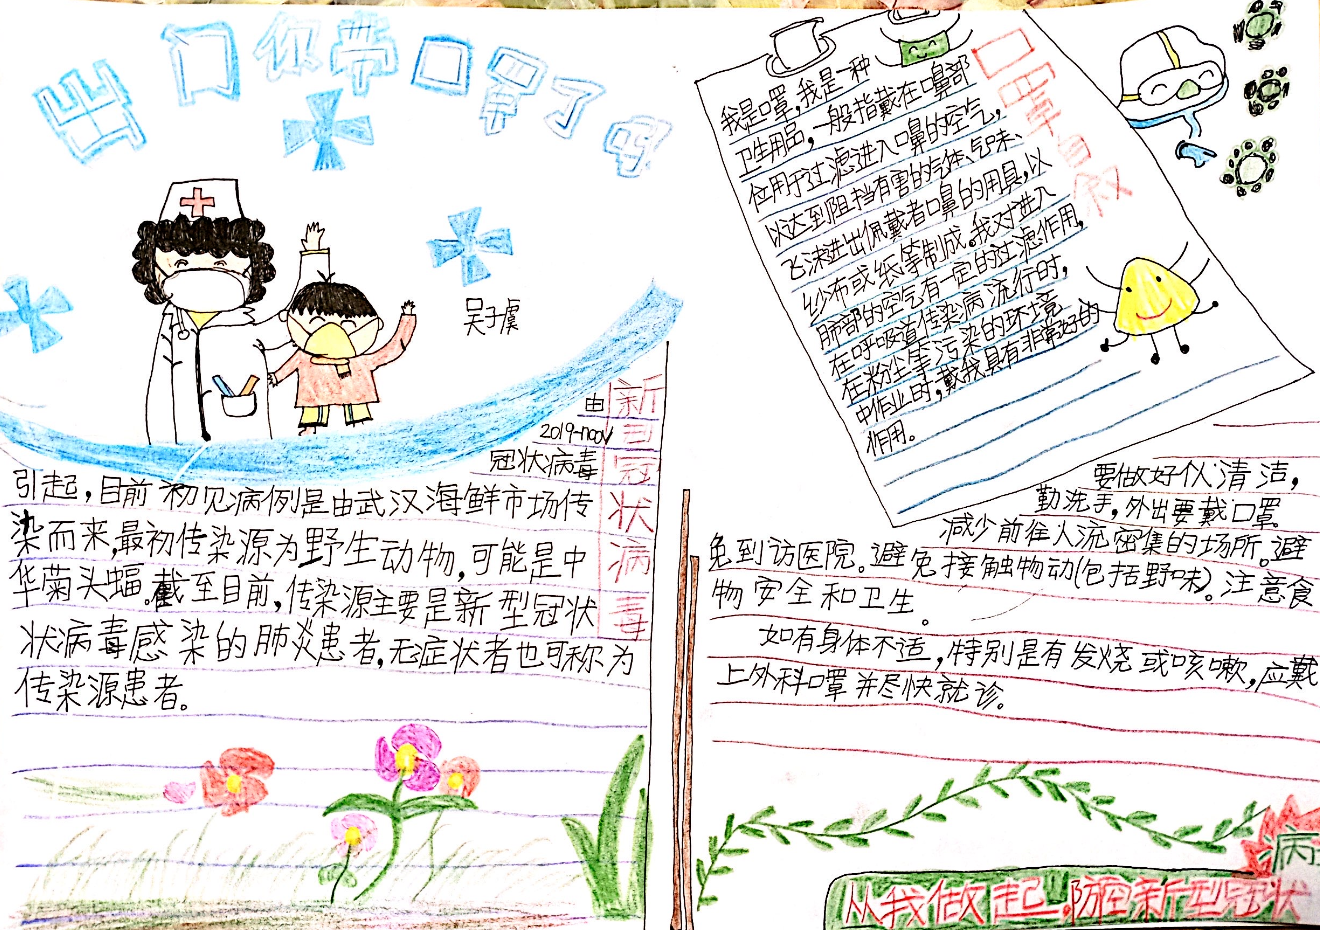 出门你带口罩了吗
吴子虞
新型冠状病毒
由
2019-nCoV
冠状病毒
引起，目前初见病例是由武汉海鲜市场传
染而来，最初传染源为野生动物，可能是中
华菊头蝠。截至目前，传染源主要是新型冠状
状病毒感染的肺炎患者，无症状者也可称为
传染源患者。
口罩自叙
我是口罩，我是一种
卫生用品，一般指戴在口鼻部
位用于过滤进入口鼻的空气，
以达到阻挡有害的气体、气味、
飞沫进出佩戴者口鼻的用具，以
纱布或纸等制成。我对进入
肺部的空气有一定的过滤作用，
在呼吸道传染病流行时，
在粉尘等污染的环境
中作业时，戴我具有非常好的
作用。
要做好个清洁，
勤洗手，外出要戴口罩
减少前往人流密集的场所。避
免到访医院。避免接触物动(包括野味)。注意食
物安全和卫生。
如有身体不适，特别是有发烧或咳嗽，应戴
上外科口罩并尽快就诊。
从我做起，防控新型冠状
病